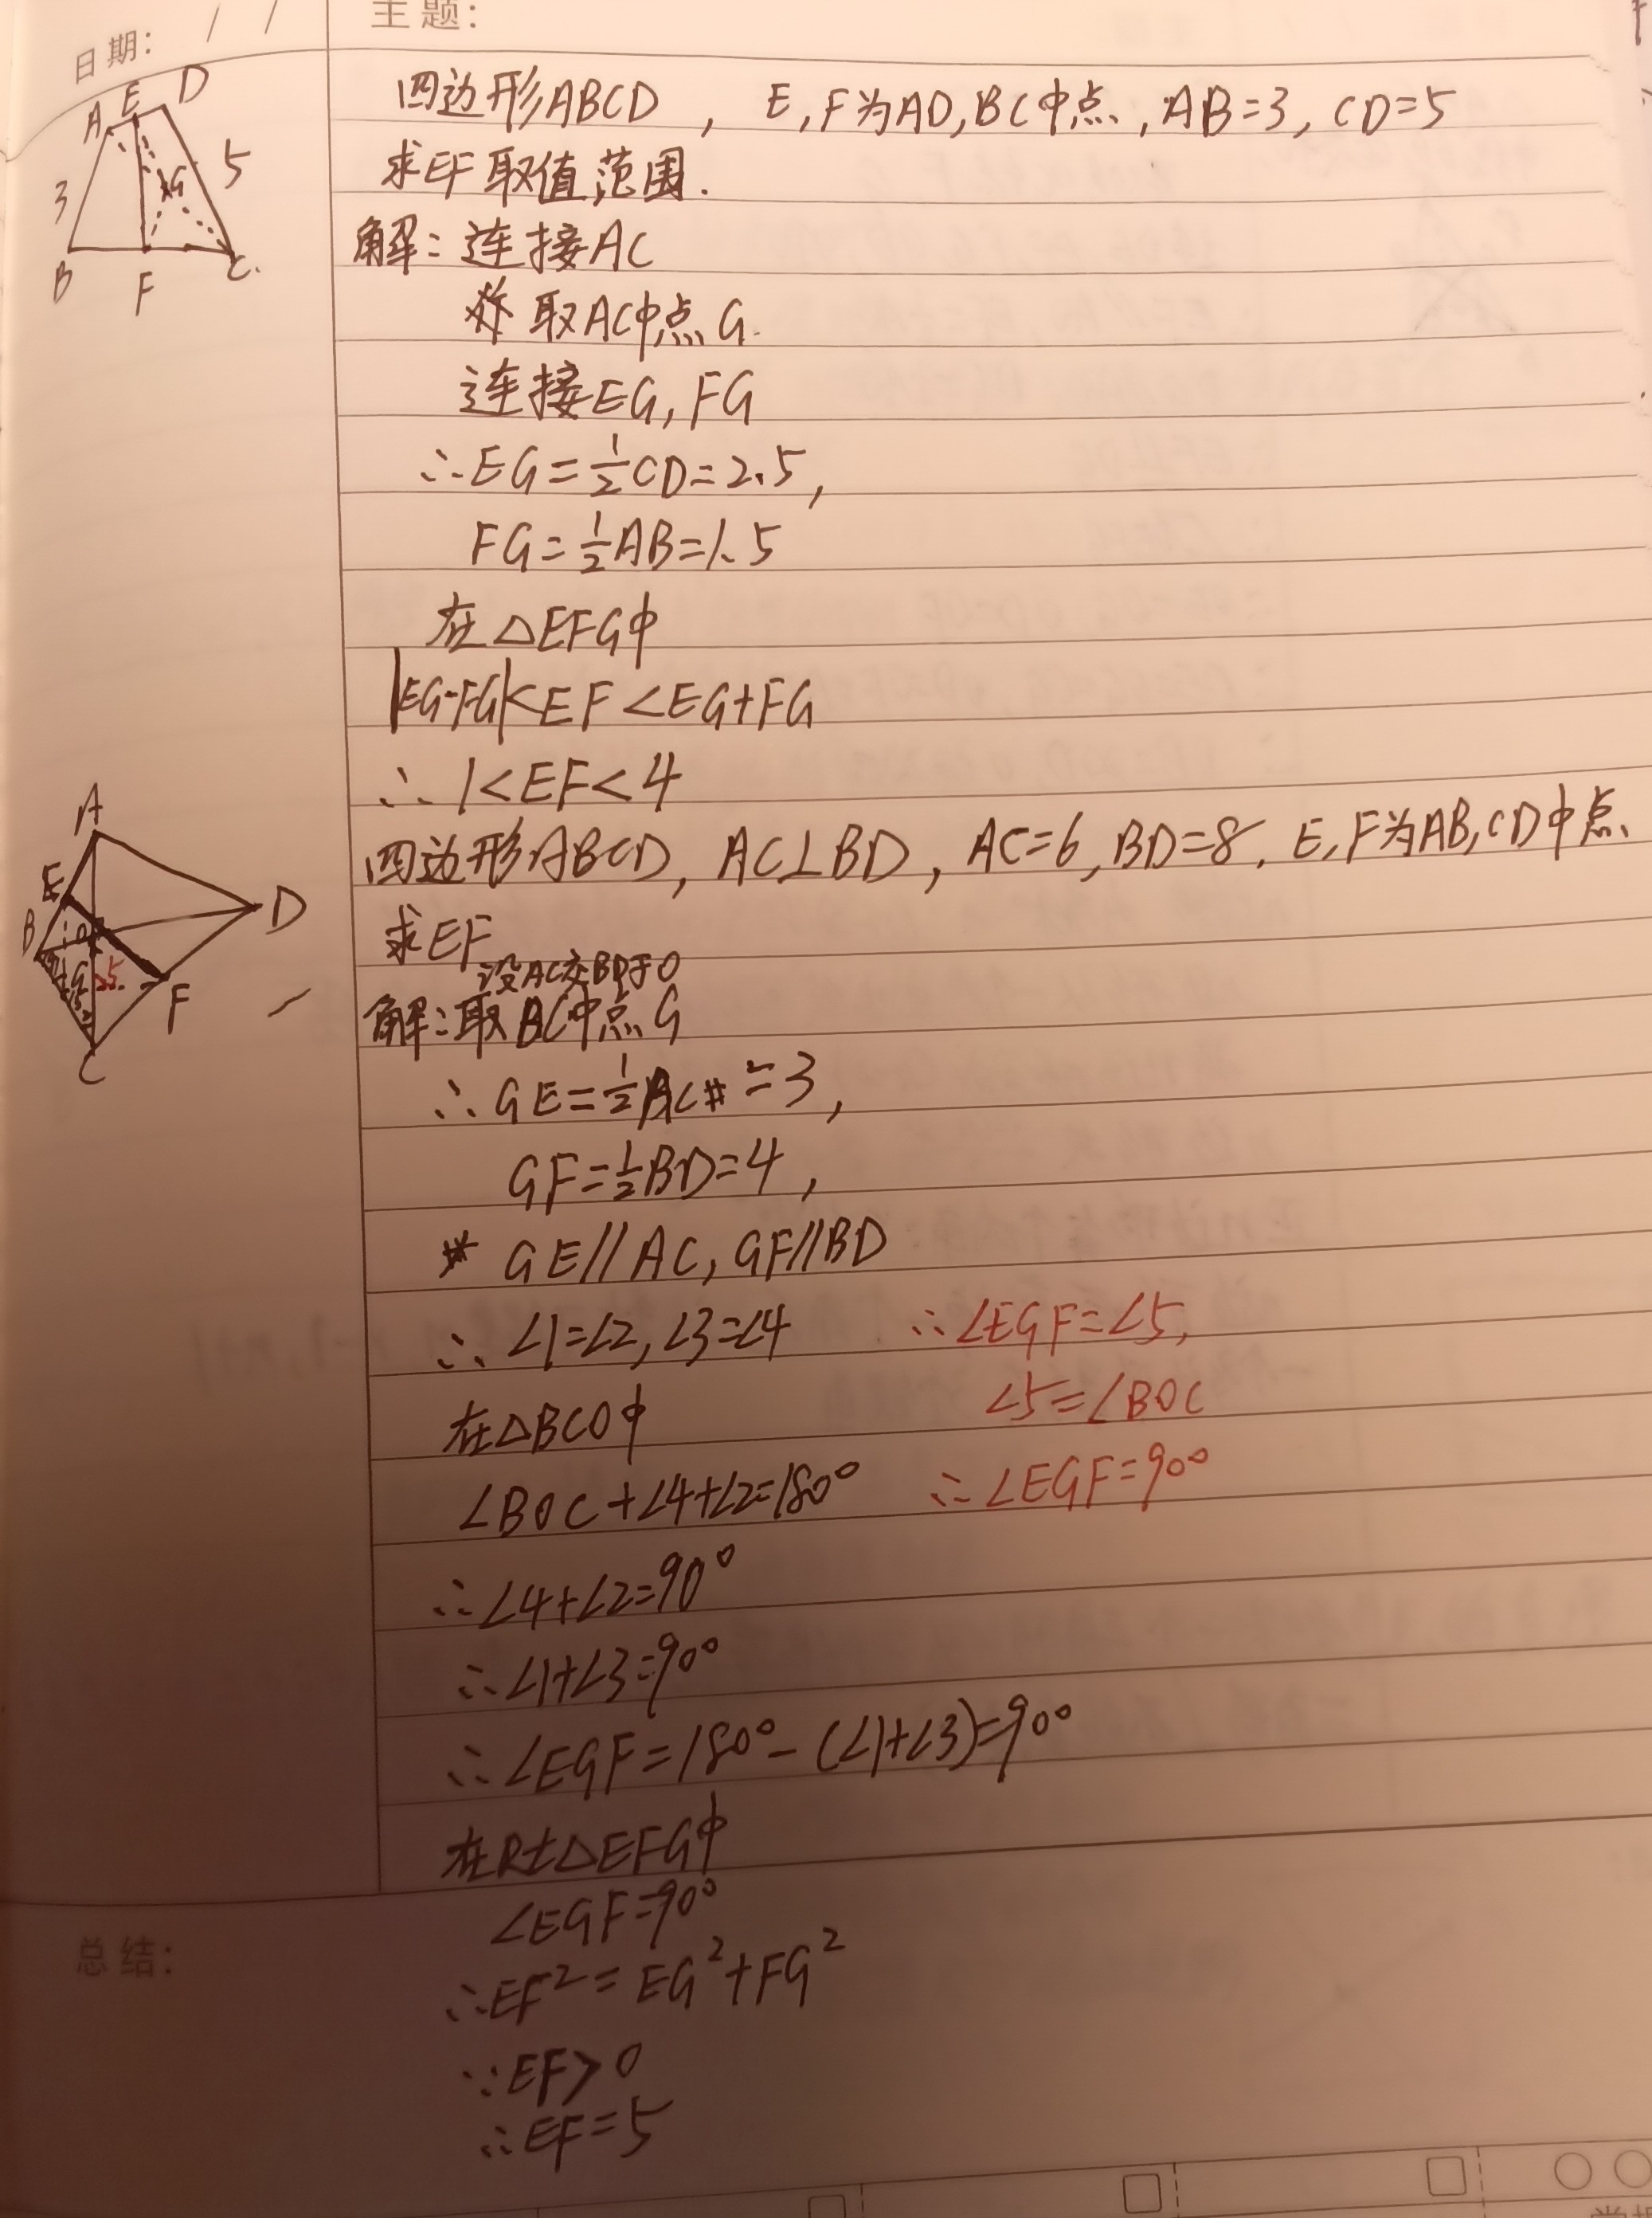 主题:
日期: / /
四边形ABCD , E,F为AD,BC中点,AB=3, CD=5
求EF取值范围.
解:连接AC
取AC中点G.
连接EG,FG
∴EG=1/2CD=2.5,
FG=1/2AB=1.5
在△EFG中
|EG-FG|<EF<EG+FG
∴1<EF<4
A E D
3 G 5
B F C.
四边形ABCD, AC⊥BD, AC=6, BD=8. E,F为AB,CD中点.
求EF
设AC交BD于O
解:取BC中点G
∴GE=1/2AC=3,
GF=1/2BD=4,
GE//AC, GF//BD
∴∠1=∠2,∠3=∠4 ∴∠EGF=∠5,
在△BCO中 ∠5=∠BOC
∠BOC+∠4+∠2=180° ∴∠EGF=90°
∴∠4+∠2=90°
∴∠1+∠3=90°
∴∠EGF=180°-(∠1+∠3)=90°
在Rt△EFG中
∠EGF=90°
∴EF²=EG²+FG²
∵EF>0
∴EF=5
A
E
B D
5
F
C
总结: